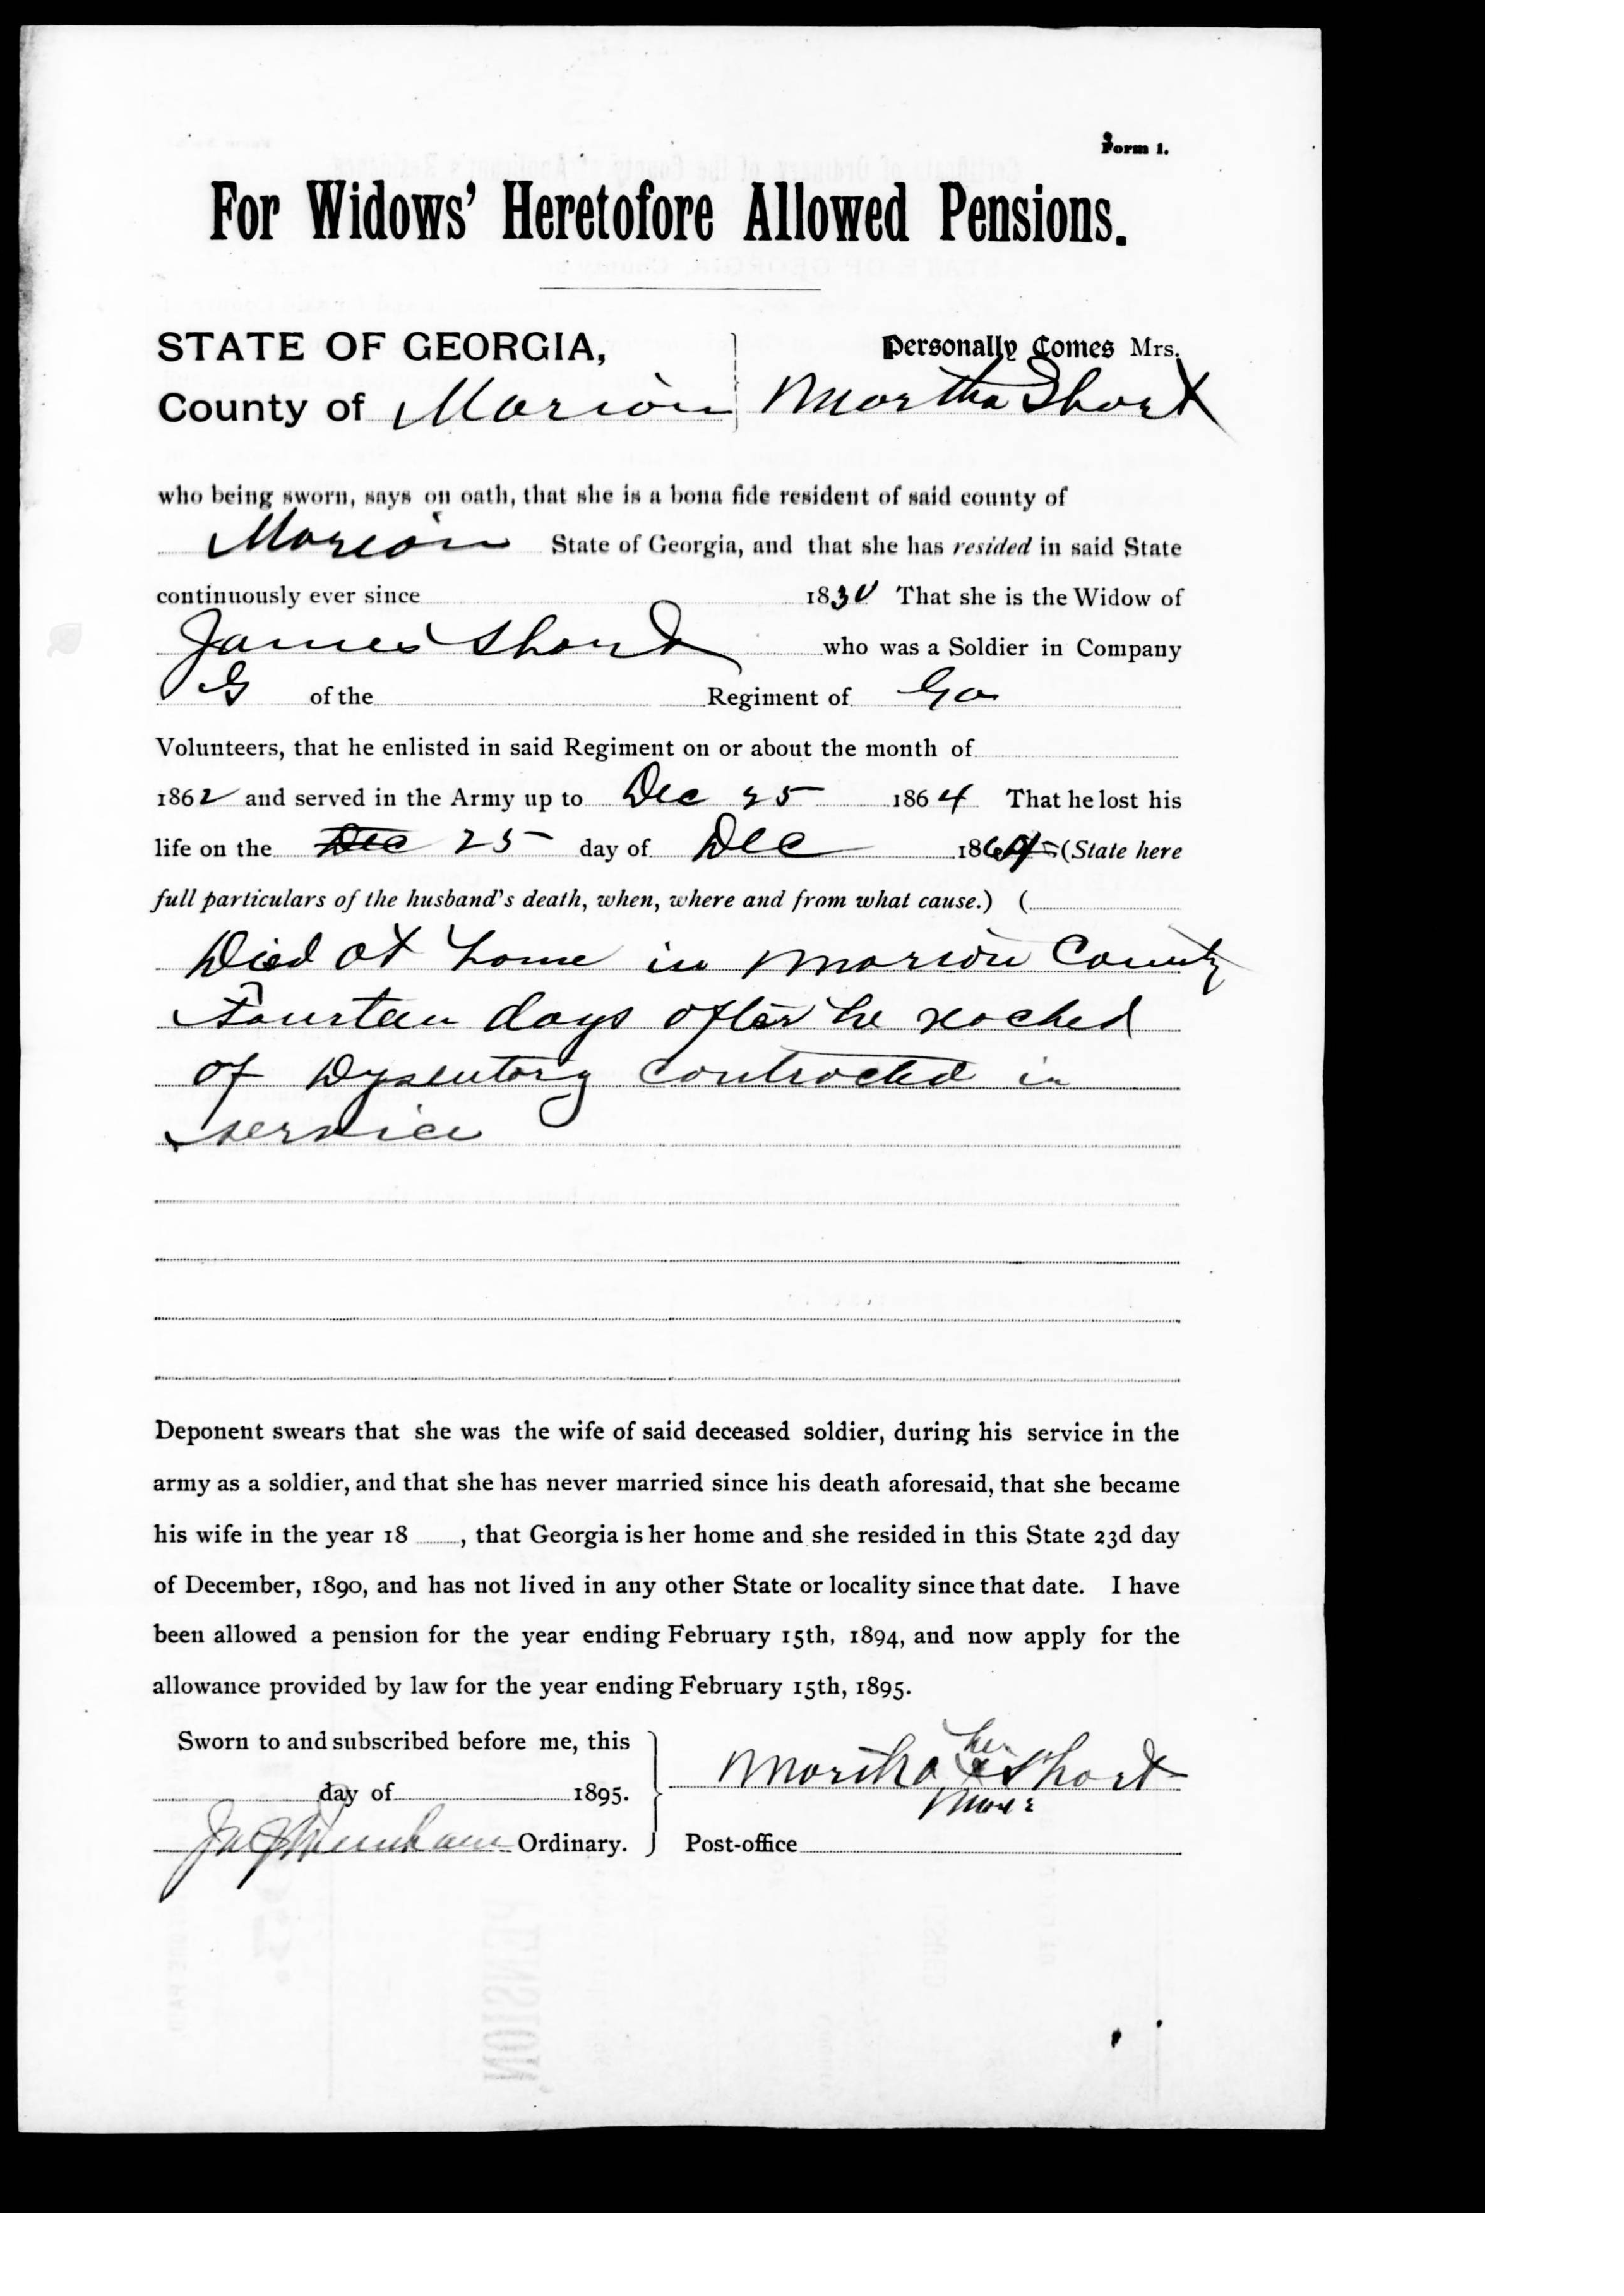 Form 1.
For Widows' Heretofore Allowed Pensions.
STATE OF GEORGIA, Personally Comes Mrs.
County of Marion Martha Short
who being sworn, says on oath, that she is a bona fide resident of said county of
Marion State of Georgia, and that she has resided in said State
continuously ever since 1830 That she is the Widow of
James Short who was a Soldier in Company
G of the Regiment of Ga
Volunteers, that he enlisted in said Regiment on or about the month of
1862 and served in the Army up to Dec 25 1864 That he lost his
life on the Dec 25 day of Dec 1864 (State here
full particulars of the husband's death, when, where and from what cause.) (
Died at home in Marion County
Fourteen days after he reached
of Dysentary contracted in
service
Deponent swears that she was the wife of said deceased soldier, during his service in the
army as a soldier, and that she has never married since his death aforesaid, that she became
his wife in the year 18 , that Georgia is her home and she resided in this State 23d day
of December, 1890, and has not lived in any other State or locality since that date. I have
been allowed a pension for the year ending February 15th, 1894, and now apply for the
allowance provided by law for the year ending February 15th, 1895.
Sworn to and subscribed before me, this
her
Martha x Short
mark
day of 1895.
Ordinary. Post-office